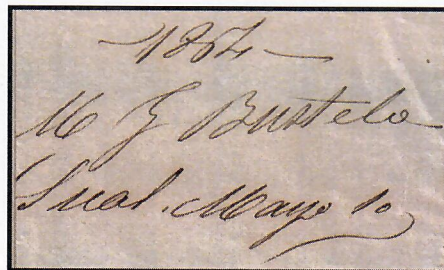 -1864-
M G Bustelo
Sual. Mayo 10